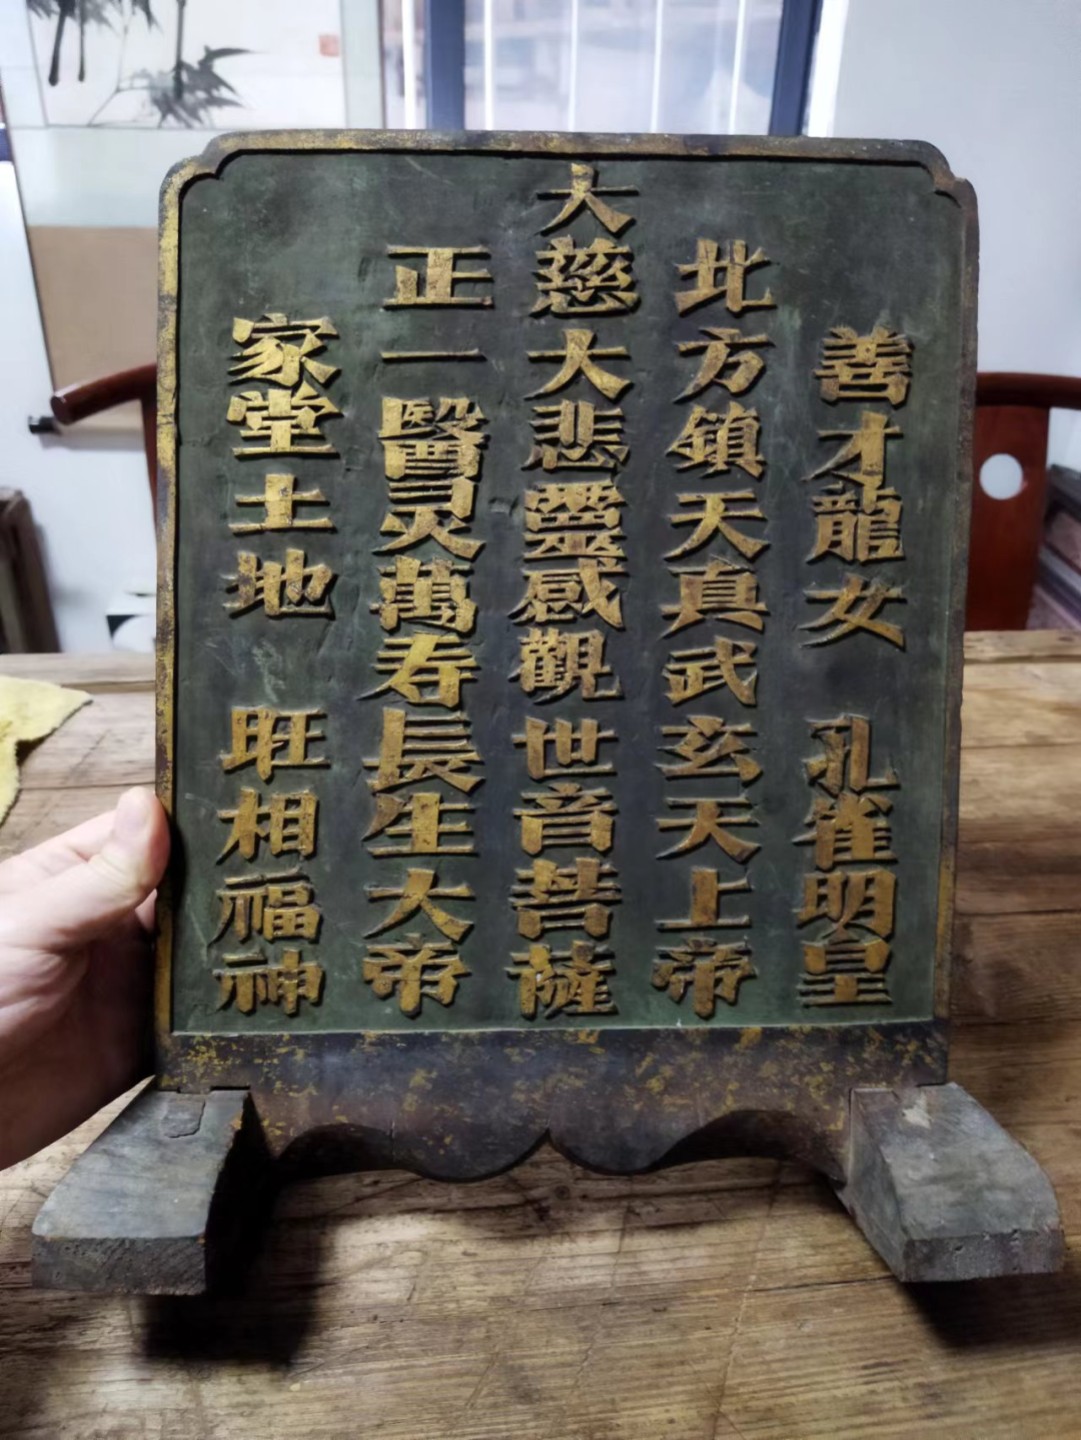 善才龍女 孔雀明皇
北方鎮天真武玄天上帝
大慈大悲靈感觀世音菩薩
正一醫灵萬寿長生大帝
家堂土地 旺相福神